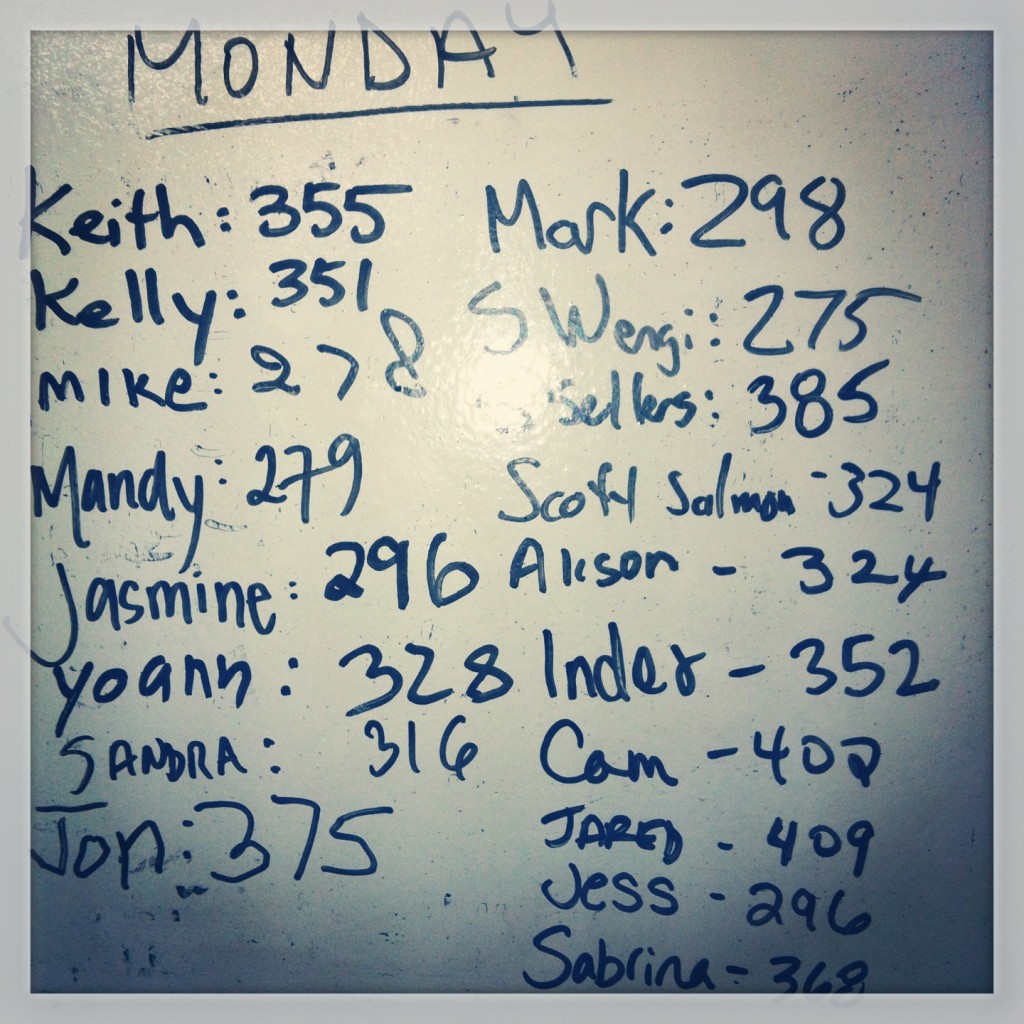 MONDAY
Keith: 355
Kelly: 351
MIKE: 278
Mandy: 279
Jasmine: 296
Yoann: 328
SANDRA: 316
Jon: 375
Mark: 298
S Wengi: 275
Sellers: 385
Scott Salmon - 324
Alison - 324
Inder - 352
Cam - 402
JARED - 409
Jess - 296
Sabrina - 368